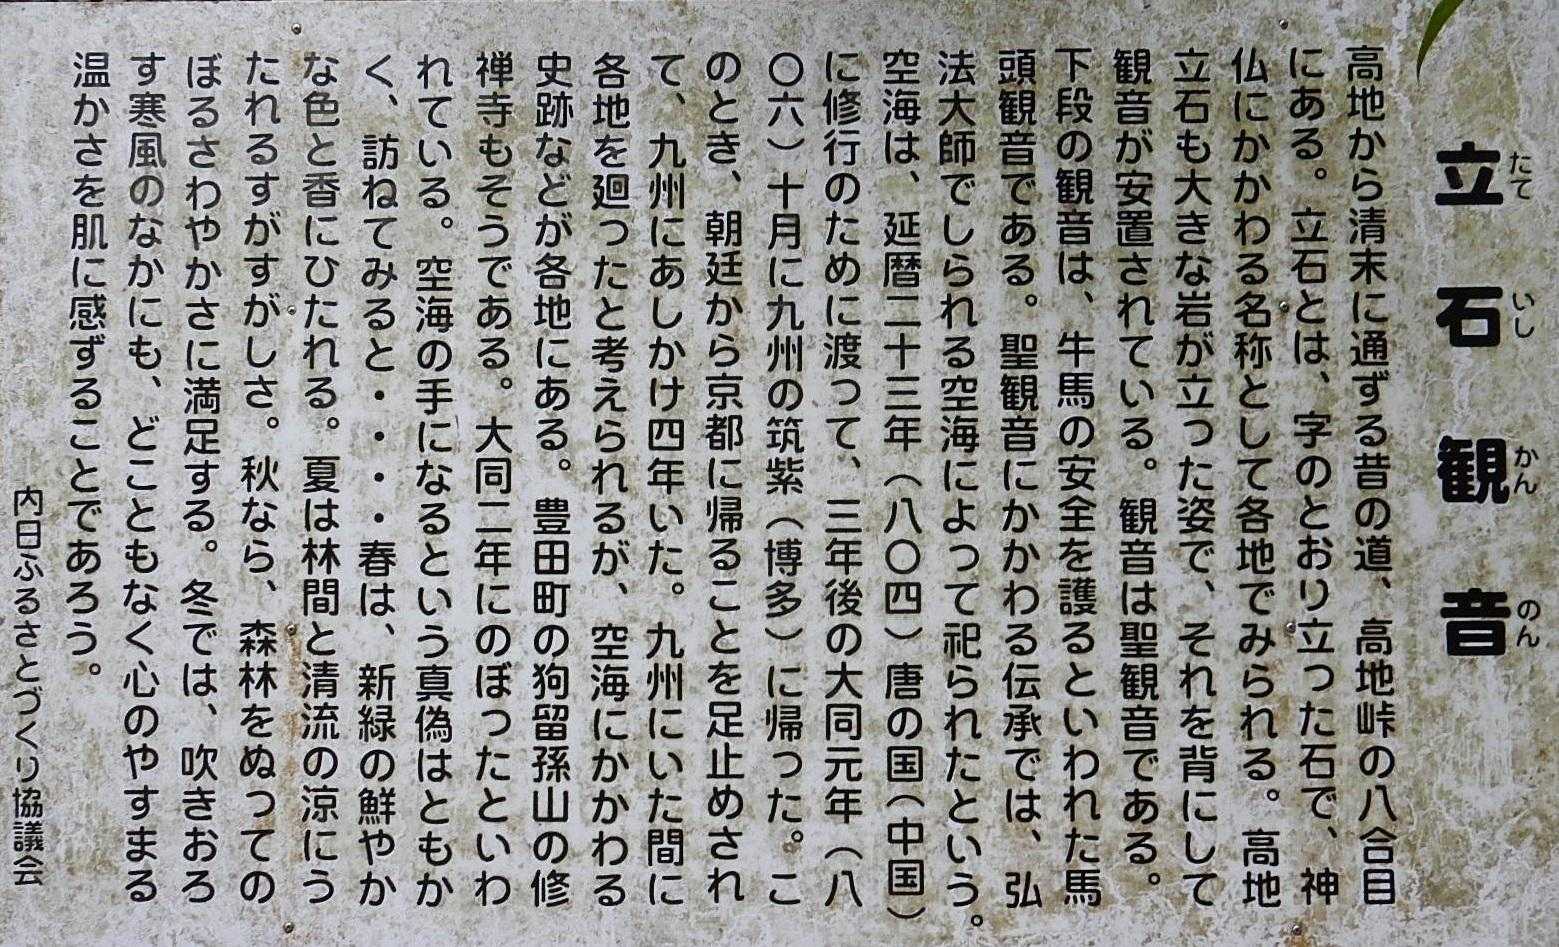 立石観音
たて いし かん のん
高地から清末に通ずる昔の道、高地峠の八合目
にある。立石とは、字のとおり立った石で、神
仏にかかわる名称として各地でみられる。高地
立石も大きな岩が立った姿で、それを背にして
観音が安置されている。観音は聖観音である。
下段の観音は、牛馬の安全を護るといわれた馬
頭観音である。聖観音にかかわる伝承では、弘
法大師でしられる空海によって祀られたという。
空海は、延暦二十三年（八〇四）唐の国（中国）
に修行のために渡って、三年後の大同元年（八
〇六）十月に九州の筑紫（博多）に帰った。こ
のとき、朝廷から京都に帰ることを足止めされ
て、九州にあしかけ四年いた。九州にいた間に
各地を廻ったと考えられるが、空海にかかわる
史跡などが各地にある。豊田町の狗留孫山の修
禅寺もそうである。大同二年にのぼったといわ
れている。空海の手になるという真偽はともか
く、訪ねてみると・・・・春は、新緑の鮮やか
な色と香にひたれる。夏は林間と清流の涼にう
たれるすがすがしさ。秋なら、森林をぬっての
ぼるさわやかさに満足する。冬では、吹きおろ
す寒風のなかにも、どこともなく心のやすまる
温かさを肌に感ずることであろう。
内日ふるさとづくり協議会